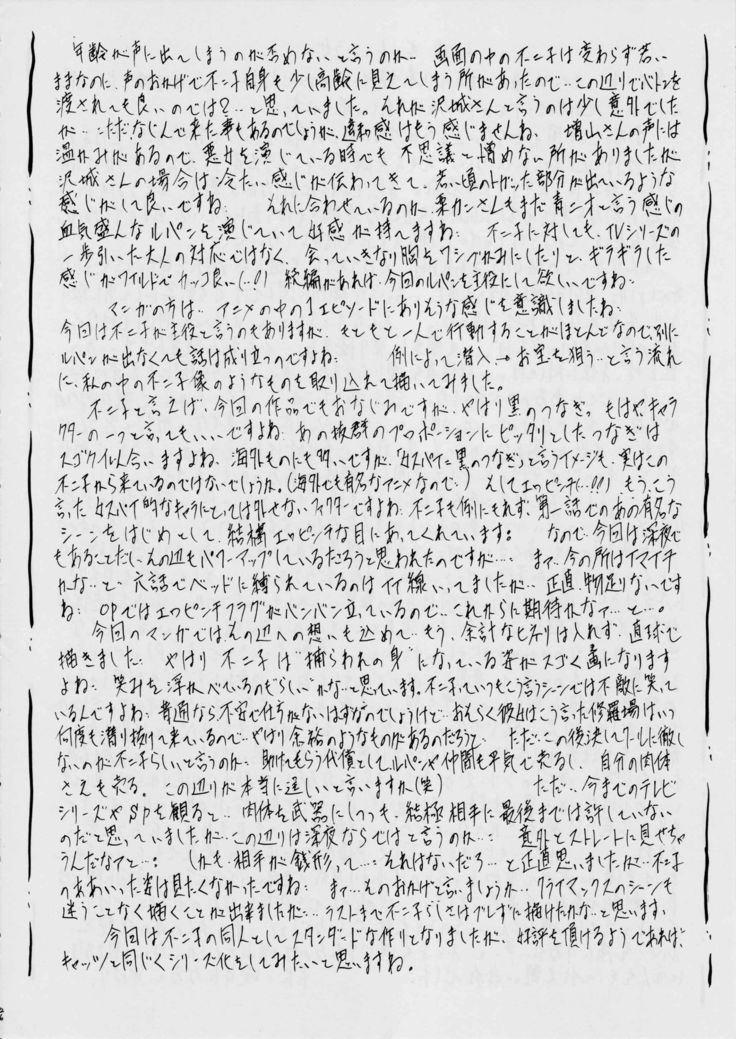 年齢が声に出てしまうのが否めないと言うのか‥ 画面の中の不二子は変わらず若い
ままなのに、声のおかげで不二子自身も少し高齢に見えてしまう所があったので‥この辺りでバトンを
渡されても良いのでは?‥と思っていました。それが沢城さんと言うのは少し意外でした
が‥ただなじんで来た事もあるのでしょうが、違和感はもう感じませんね、 増山さんの声には
温かみがあるので、悪女を演じている時でも 不思議と憎めない所がありましたが
沢城さんの場合は冷たい感じが伝わってきて、若い頃のトガッた部分が出ているような
感じがして良いですね: それに合わせているのか、栗カンさんもまだ青二才と言う感じの
血気盛んなルパンを演じていて好感が持てますね: 不二子に対しても、TVシリーズの
一歩引いた大人の対応ではなく、会っていきなり胸をワシヅかみにしたりと、ギラギラした
感じがワイルドでカッコ良い(‥!!) 続編があれば、今回のルパンを主役にして欲しいですね:
マンガの方は‥ アニメの中の1エピソードにありそうな感じを意識しましたね:
今回は不二子が主役と言うのもありますが、もともと一人で行動することがほとんどなので、別に
ルパンが出なくても話は成り立つのですよね: 例によって潜入→お宝を狙う‥と言う流れ
に、私の中の不二子像のようなものを取り込んで描いてみました。
不二子と言えば、今回の作品でもおなじみですが、やはり黒のつなぎっ もはやキャラ
クターの一つと言ってもいいですよね: あの抜群のプロポーションにピッタリとしたつなぎは
スゴク似合いますよね、海外ものにも多いですが、「女スパイに黒のつなぎ」と言うイメージも、実はこの
不二子から来ているのではないでしょうか。(海外でも有名なアニメなので‥) そしてエッピンチ(‥!!!) もう、こう
言った女スパイ的なキャラにとっては外せないファクターですよね: 不二子も例にもれず、第一話でのあの有名な
シーンをはじめとして、結構エッピンチな目にあってくれています: なので、今回は深夜で
もあることだし、その辺もパワーアップしているだろうと思われたのですが‥: まァ‥今の所はイマイチ
かな‥と‥ 六話でベッドに縛られているのはイイ線いってましたが‥ 正直、物足りないです
ね: OPではエッピンチフラグがバンバン立っているので‥これからに期待かなァ‥と‥。
今回のマンガでは、その辺への想いも込めて‥もう、余計なヒネリは入れず、直球で
描きました: やはり 不二子は“捕らわれの身”になっている姿がスゴく画になります
よね: 笑みを浮かべているのも“らしい”かな‥と思っています。不二子っていつもこう言うシーンでは不敵に笑って
いるんですよね: 普通なら不安で仕方がないはずなのでしょうけど‥おそらく彼女はこう言った修羅場はいつも
何度も潜り抜けて来ているので‥やはり余裕のようなものがあるのだろうと‥ ただ:この後決してクールに徹し
ないのが不二子らしいと言うのか: 助けてもらう代償としてルパンや仲間も平気で売るし、自分の肉体
さえも売る。この辺りが本当に逞しいと言いますか(笑) ただ‥今までのテレビ
シリーズやSPを観ると‥ 肉体を武器にしつつも、結極相手に最後までは許していない
のだと思っていましたが‥この辺りは深夜ならではと言うのか‥: 意外とストレートに見せちゃ
うんだなァと‥: しかも、相手が銭形って‥:それはないだろ‥と正直思いましたが‥不二子
のああいった姿は見たくなかったですね: まァ‥そのおかげと言いましょうか‥クライマックスのシーンも
迷うことなく描くことが出来ましたが‥ラストまで不二子らしさはブレずに描けたかな‥と思います、
今回は不二子の同人としてスタンダードな作りとなりましたが、好評を頂けるようであれば、
キャッツと同じくシリーズ化をしてみたいと思いますね。